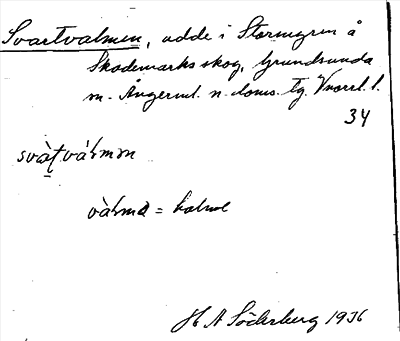 Svartvalmen, udde i Stormyren å
Skademarks skog, Grundsunda
sn. Ångerml. n. doms. tg. Vnorrl. l.
34
svàt̠vármən
vàrmə = halvö
H A Söderberg 1936